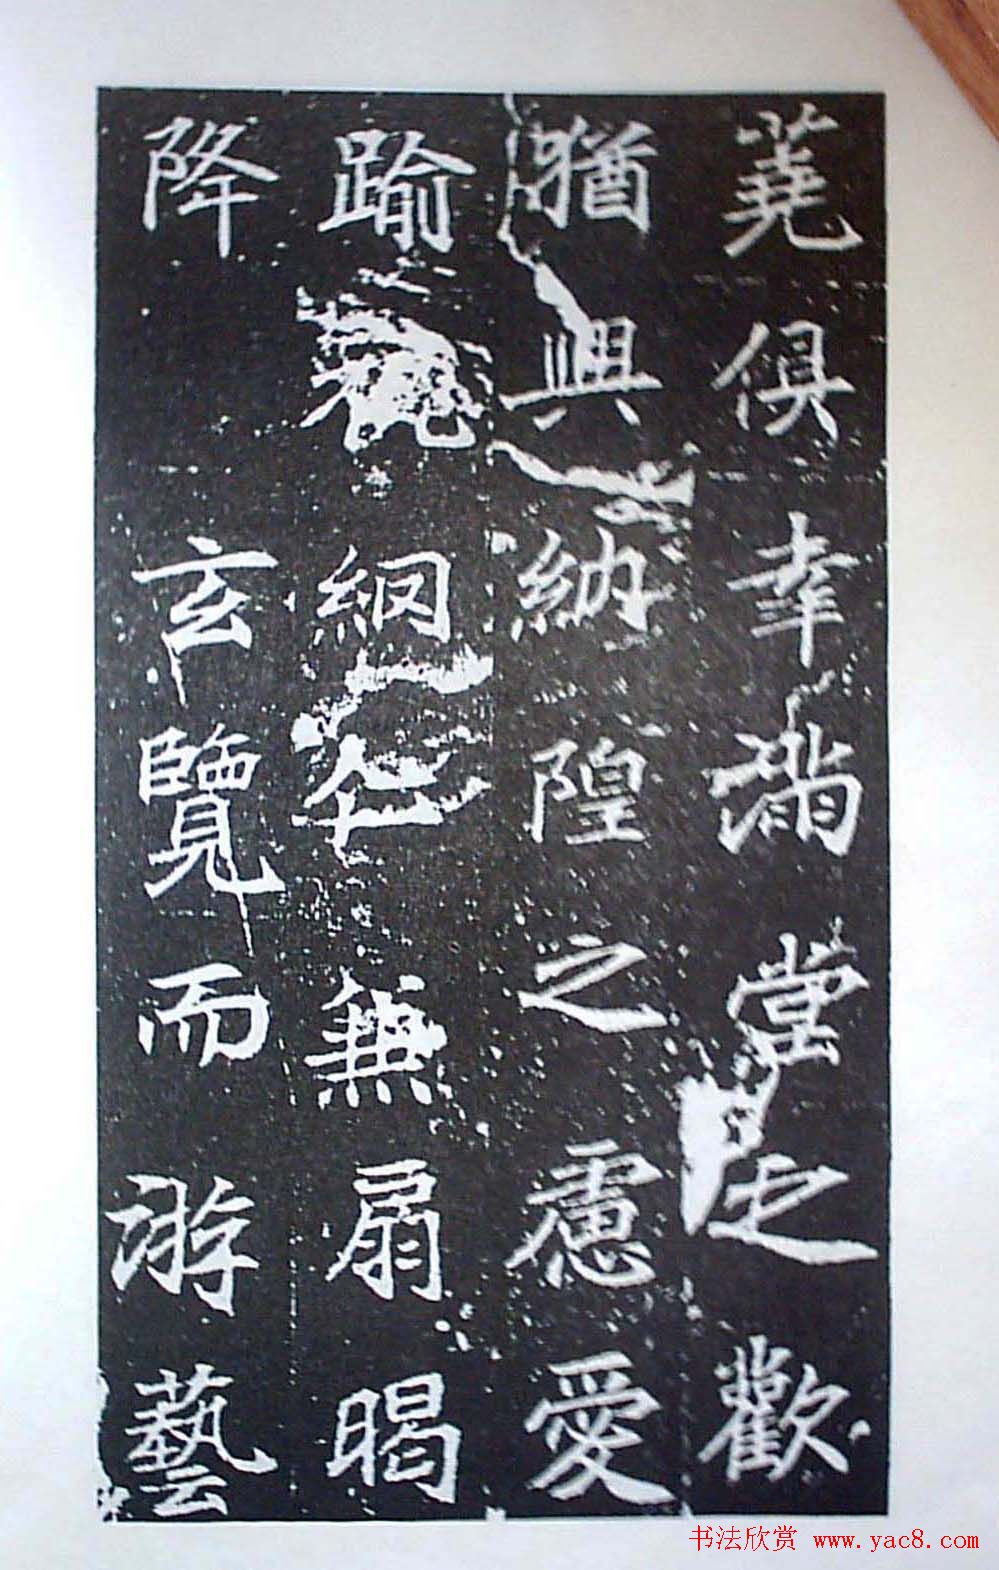 蕘俱幸滿堂之歡
猶興納隍之慮愛
踰網仁兼扇暍
降玄覽而游藝
书法欣赏 www.yac8.com